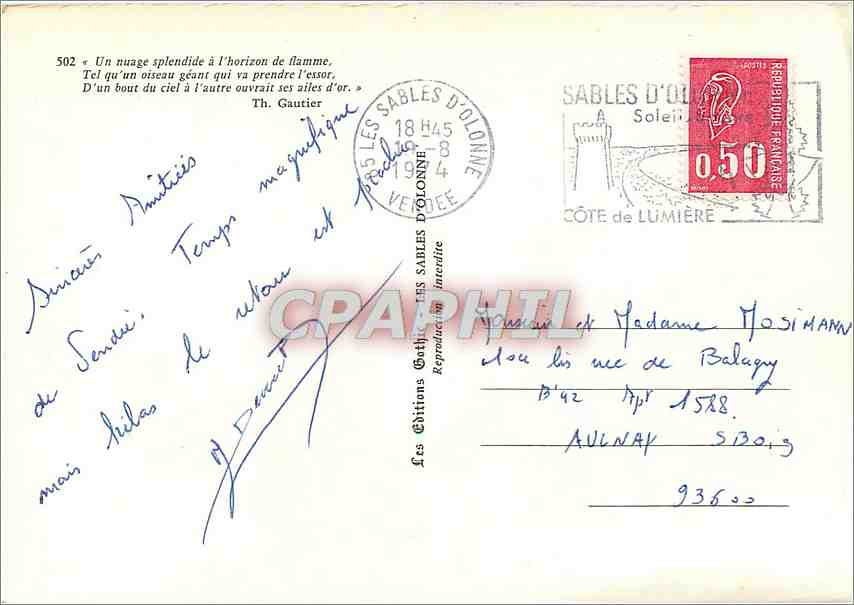 502 « Un nuage splendide à l'horizon de flamme,
Tel qu'un oiseau géant qui va prendre l'essor,
D'un bout du ciel à l'autre ouvrait ses ailes d'or. »
Th. Gautier
85 LES SABLES D'OLONNE
18 H45
-8
19 4
VENDEE
SABLES D'OLONNE
Soleil
CÔTE de LUMIÈRE
POSTES
RÉPUBLIQUE FRANÇAISE
0,50
Sincères Amitiés
de Vendée. Temps magnifique
mais hélas le retour est proche
Les Editions Gothic - LES SABLES D'OLONNE
Reproduction interdite
CPAPHIL
Monsieur et Madame MOSIMANN
bis rue de Balagny
Apt 1588
AULNAY S Bois
93600